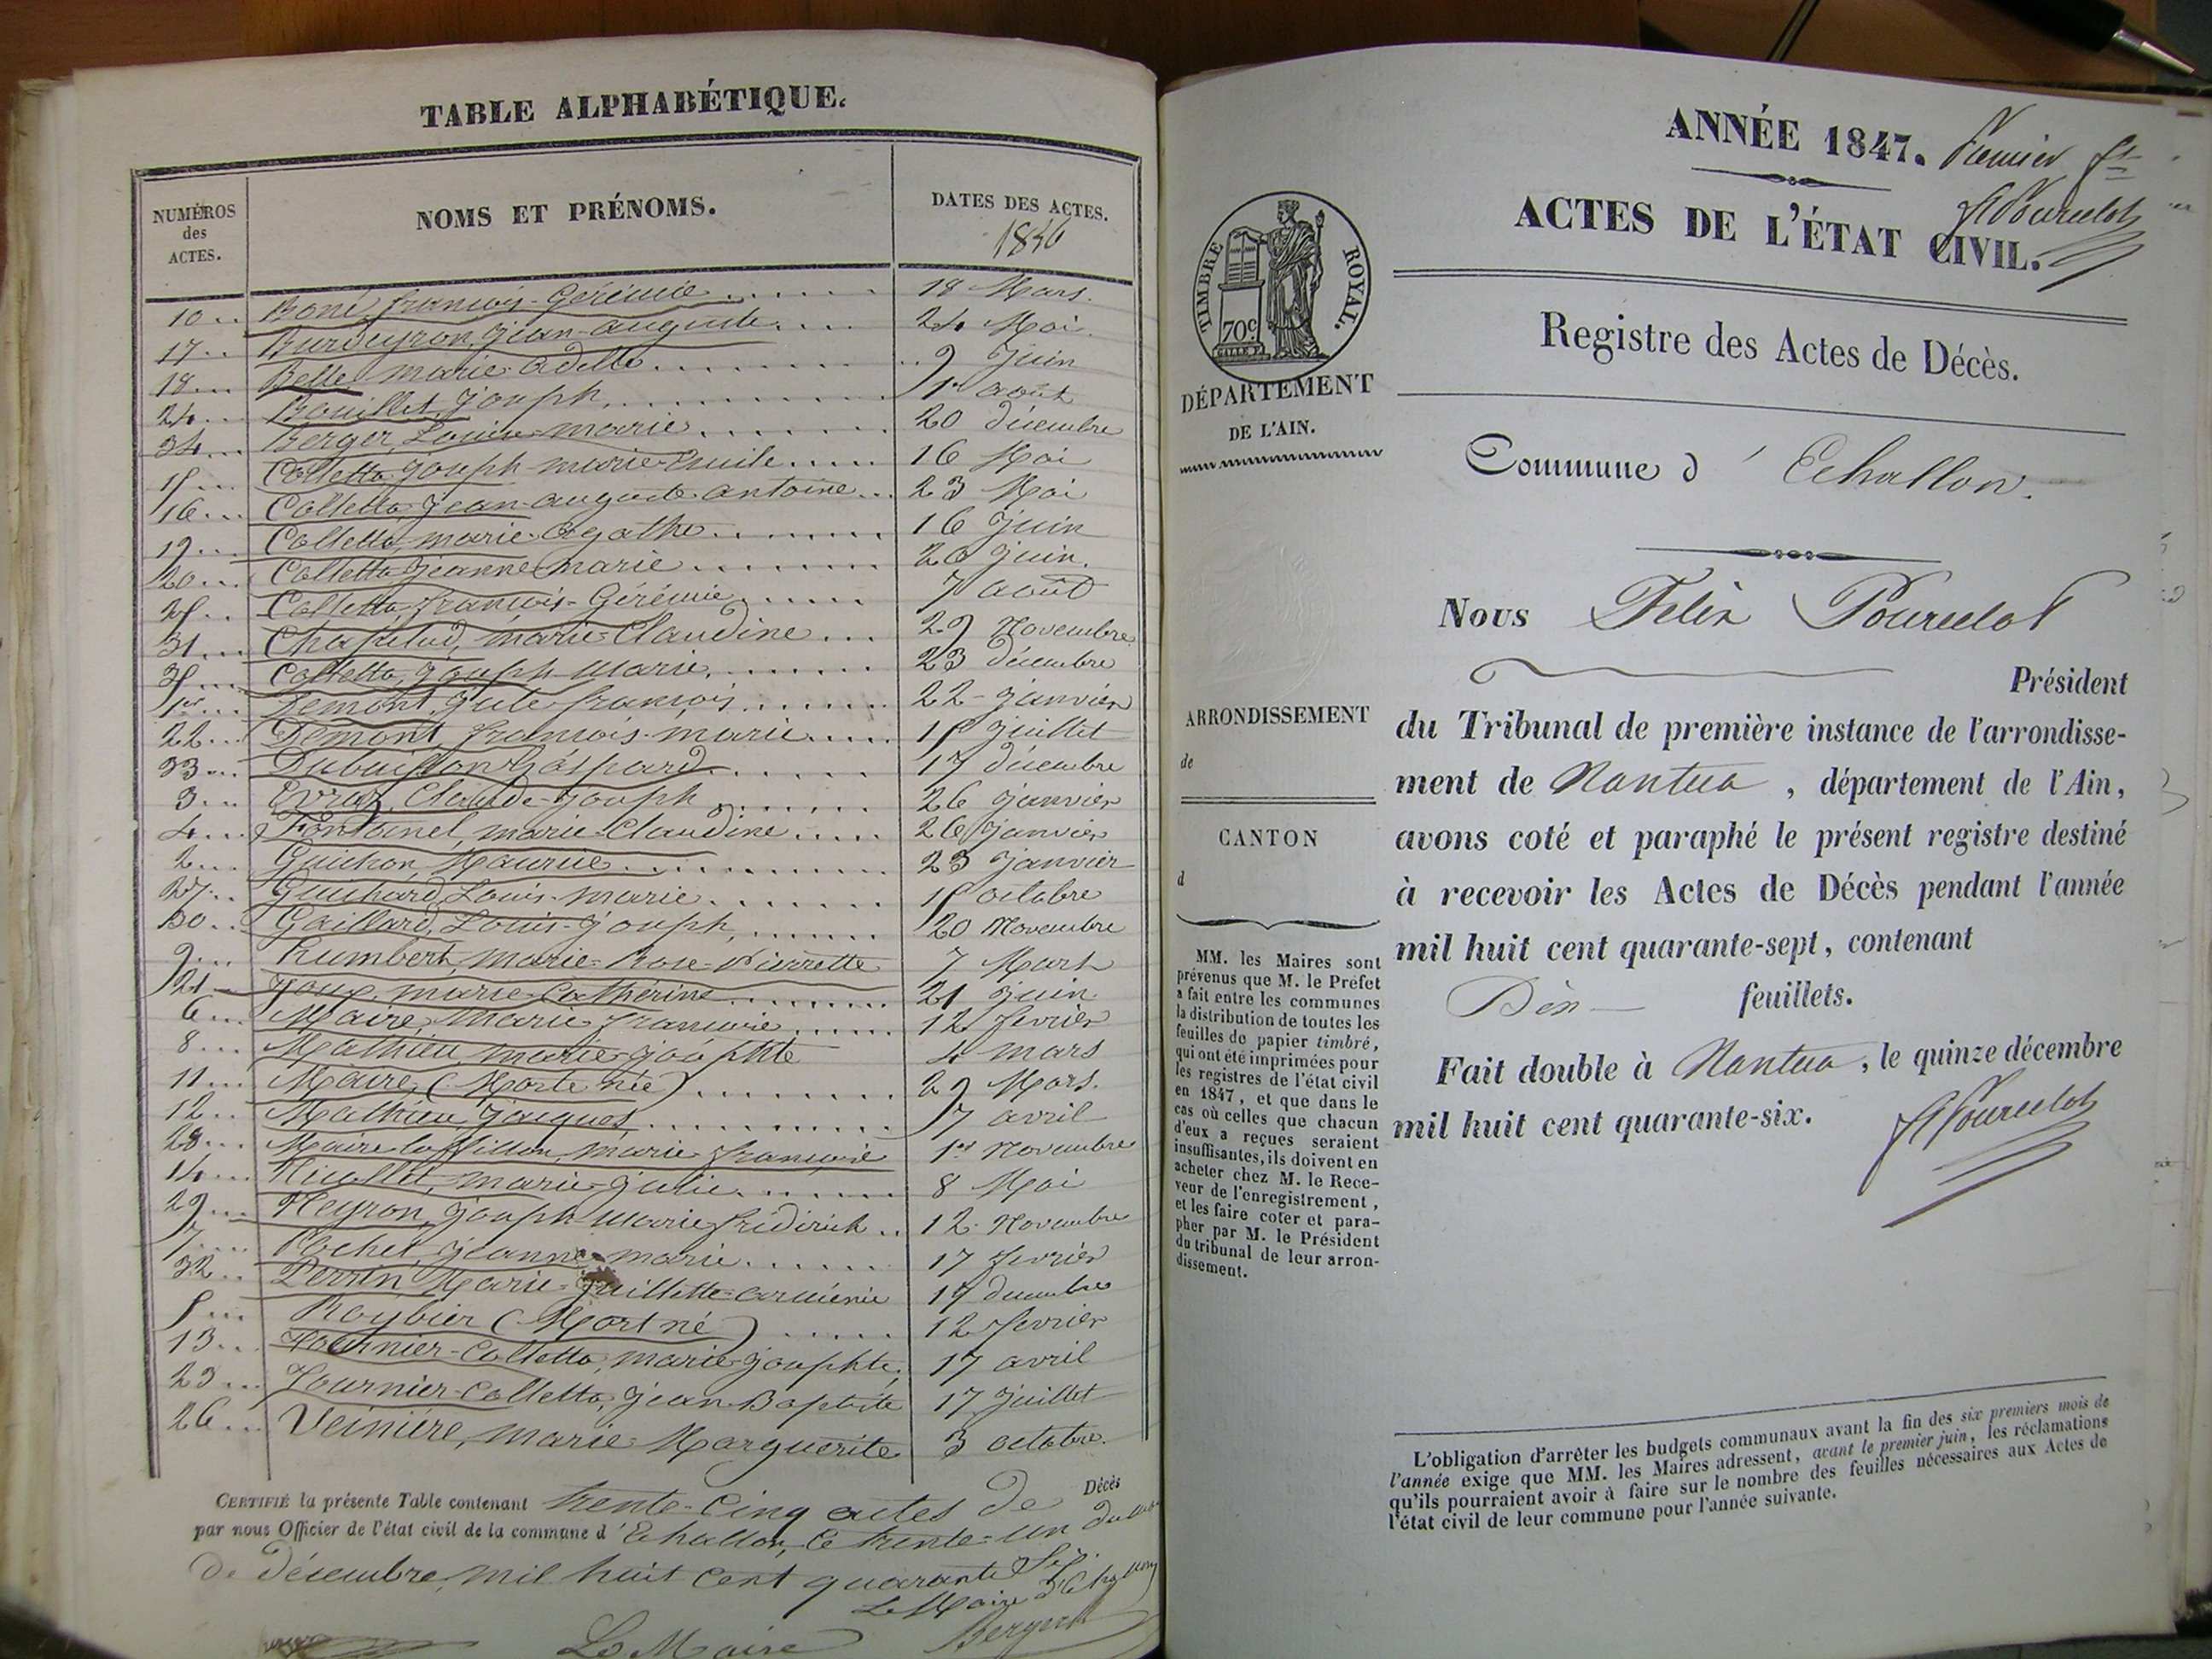 TABLE ALPHABÉTIQUE.
NUMÉROS des ACTES.
NOMS ET PRÉNOMS.
DATES DES ACTES.
1846
10 .. Boné, françois-Gérémie 18 Mars.
17 .. Burdeyron, Jean-auguste 24 Mai.
18 ... Belle marie Adelle 9 Juin
24 ... Bouillet, Joseph 1er août
34 ... Berger, Louise-marie 20 décembre
15 ... Colletta, Joseph-marie-Emile 16 Mai
16 ... Colletta, Jean-auguste-antoine 23 Mai
19 ... Colletta, marie-Agathe 16 Juin
20 ... Colletta, Jeanne-marie 20 Juin.
25 .. Colletta, françois-Gérémie 7 août
31 ... Chapelud, marie-Claudine 29 Novembre
35 ... Colletta, Joseph-Marie 23 décembre
1er ... Demont, Jule françois 22 Janvier
22 ... Demont, françois-marie 15 Juillet
33 ... Dubuisson Gaspard 17 décembre
3 ... Evraz, Claude-Joseph 26 Janvier
4 ... Fontanel, marie-Claudine 26 Janvier
2 ... Guichon, Maurice 23 Janvier
27 .. Guichard, Louis-marie 15 octobre
30 .. Gaillard, Louis-Joseph 20 Novembre
9 ... Humbert, marie-Rose-Pierrette 7 Mars
21 Joux, marie-Catherine 21 Juin
6 ... Maire, Marie françoise 12 février
8 ... Mathieu, marie-Josephte 4 mars
11 ... Maire, (Morte née) 29 Mars.
12 .. Mathieu, Jacques 7 avril
28 ... Maire laffillon, marie françoise 1er Novembre
14 ... Nicollet, marie-Julie 8 Mai
29 ... Neyron, Joseph-Marie frédirick 12 Novembre
7 .... Pochet Jeanne-marie 17 février
32 .. Perrin, Marie-Juillette-arménie 17 décembre
5 ... Roybier (Mort né) 12 février
13 .. Tournier-Colletta, marie-Josephte 17 avril
23 ... Tournier-Colletta, Jean-Baptiste 17 Juillet
26 ... Veinière, Marie Marguerite 3 octobre.
CERTIFIÉ la présente Table contenant trente-Cinq actes de Décès
par nous Officier de l'état civil de la commune d'Echallon, le trente-un du mois
De décembre, mil huit cent quarante Six.
Le Maire d'Echallon
Le Maire
ANNÉE 1847. Premier ft
FPourcelot
ACTES DE L'ÉTAT CIVIL.
TIMBRE ROYAL.
70c
DÉPARTEMENT
DE L'AIN.
Registre des Actes de Décès.
Commune d' Echallon.
Nous Félix Pourcelot
Président
du Tribunal de première instance de l'arrondisse-
ment de Nantua, département de l'Ain,
avons coté et paraphé le présent registre destiné
à recevoir les Actes de Décès pendant l'année
mil huit cent quarante-sept, contenant
Dix feuillets.
Fait double à Nantua, le quinze décembre
mil huit cent quarante-six.
FPourcelot
ARRONDISSEMENT
de
CANTON
d
MM. les Maires sont
prévenus que M. le Préfet
a fait entre les communes
la distribution de toutes les
feuilles de papier timbré,
qui ont été imprimées pour
les registres de l'état civil
en 1847, et que dans le
cas où celles que chacun
d'eux a reçues seraient
insuffisantes, ils doivent en
acheter chez M. le Rece-
veur de l'enregistrement,
et les faire coter et para-
pher par M. le Président
du tribunal de leur arron-
dissement.
L'obligation d'arrêter les budgets communaux avant la fin des six premiers mois de
l'année exige que MM. les Maires adressent, avant le premier juin, les réclamations
qu'ils pourraient avoir à faire sur le nombre des feuilles nécessaires aux Actes de
l'état civil de leur commune pour l'année suivante.